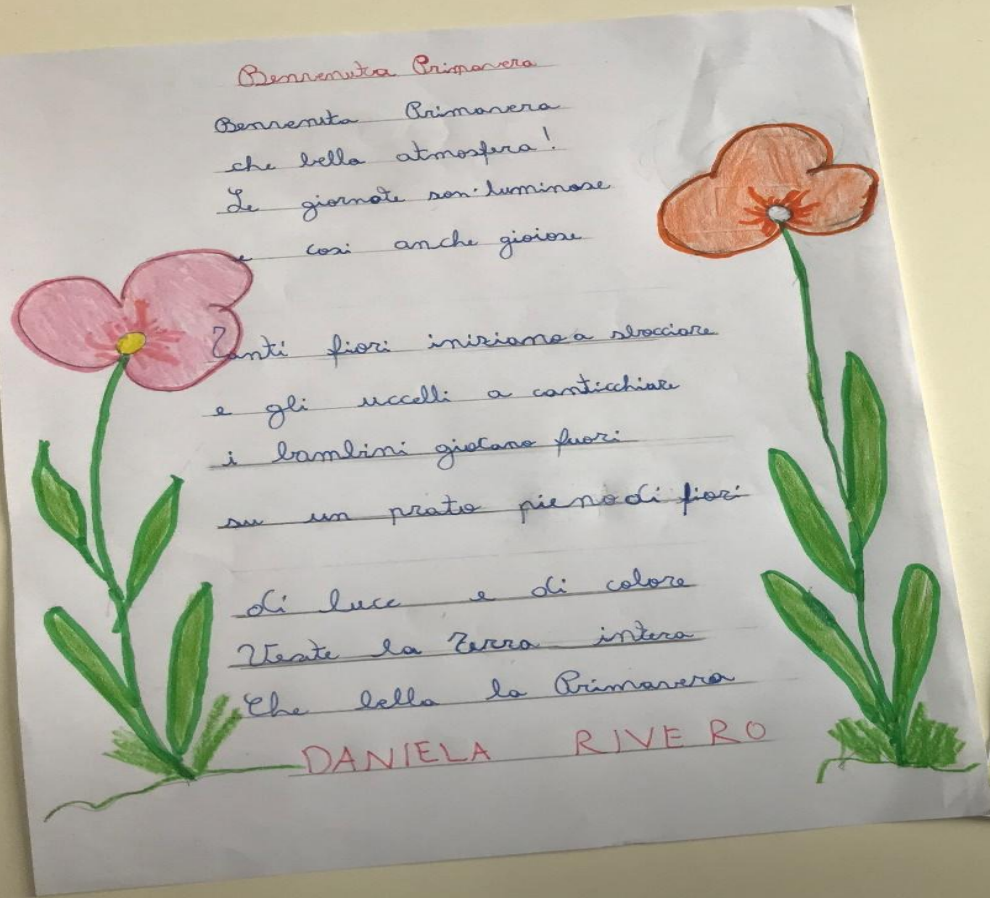 Benvenuta Primavera
Benvenuta Primavera
che bella atmosfera!
Le giornate son luminose
e cosi anche gioiose
Tanti fiori iniziano a sbocciare
e gli uccelli a canticchiare
i bambini giocano fuori
su un prato pieno di fiori
di luce e di colore
Veste la Terra intera
Che bella la Primavera
DANIELA RIVERO